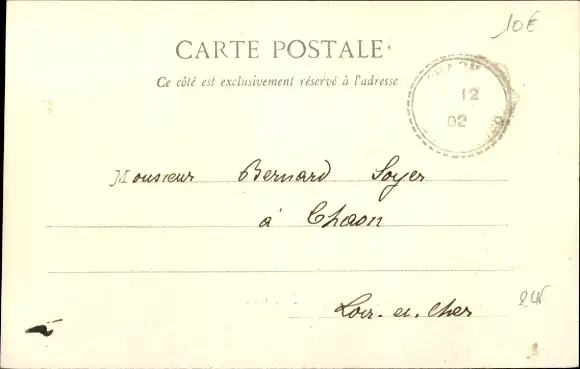 10€
CARTE POSTALE
Ce côté est exclusivement réservé à l'adresse
12
02
Monsieur Bernard Soyer
à Chaon
Loir-et-Cher